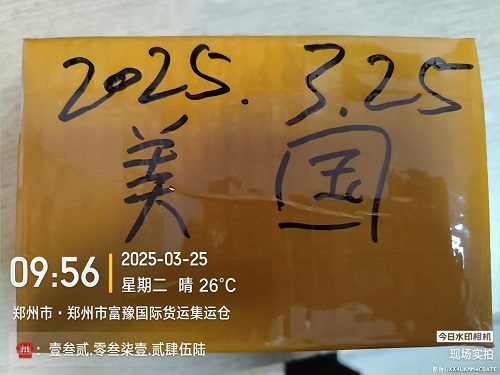 2025.3.25
美国
09:56
2025-03-25
星期二 晴 26°C
郑州市·郑州市富豫国际货运集运仓
：壹叁贰.零叁柒壹.贰肆伍陆
今日水印相机
现场实拍